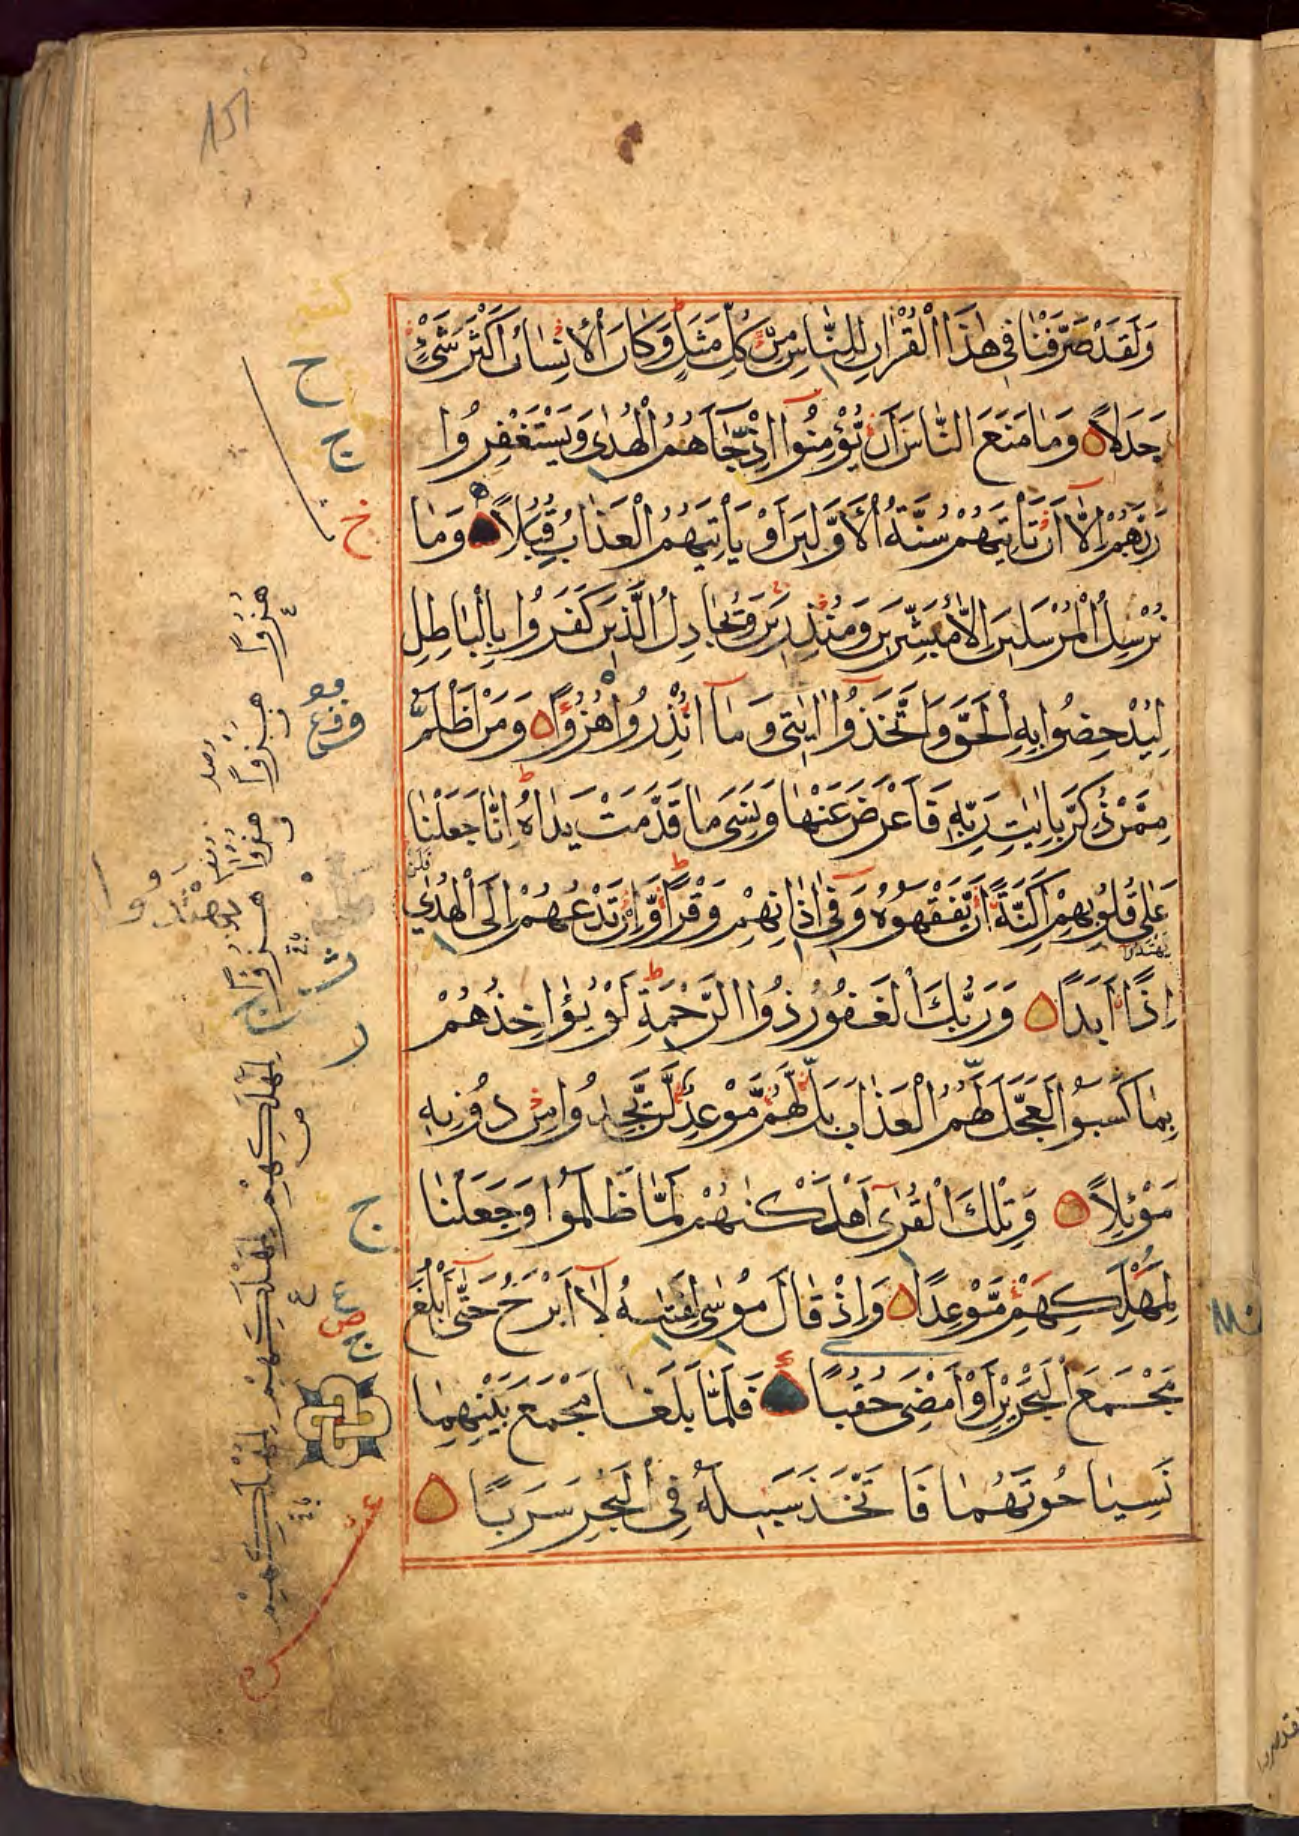 151
وَلَقَدْ صَرَّفْنَا فِي هٰذَا الْقُرْاٰنِ لِلنَّاسِ مِنْ كُلِّ مَثَلٍ وَكَانَ الْاِنْسَانُ اَكْثَرَ شَيْءٍ
جَدَلًا وَمَا مَنَعَ النَّاسَ اَنْ يُؤْمِنُوا اِذْ جَاۤءَهُمُ الْهُدٰى وَيَسْتَغْفِرُوا
رَبَّهُمْ اِلَّا اَنْ تَأْتِيَهُمْ سُنَّةُ الْاَوَّلِينَ اَوْ يَأْتِيَهُمُ الْعَذَابُ قُبُلًا وَمَا
نُرْسِلُ الْمُرْسَلِينَ اِلَّا مُبَشِّرِينَ وَمُنْذِرِينَ وَيُجَادِلُ الَّذِينَ كَفَرُوا بِالْبَاطِلِ
لِيُدْحِضُوا بِهِ الْحَقَّ وَاتَّخَذُوا اٰيٰتِي وَمَا اُنْذِرُوا هُزُوًا وَمَنْ اَظْلَمُ
مِمَّنْ ذُكِّرَ بِاٰيٰتِ رَبِّهِ فَاَعْرَضَ عَنْهَا وَنَسِيَ مَا قَدَّمَتْ يَدَاهُ اِنَّا جَعَلْنَا
عَلٰى قُلُوبِهِمْ اَكِنَّةً اَنْ يَفْقَهُوهُ وَفِي اٰذَانِهِمْ وَقْرًا وَاِنْ تَدْعُهُمْ اِلَى الْهُدٰى
فَلَنْ
يَهْتَدُوا
اِذًا اَبَدًا وَرَبُّكَ الْغَفُورُ ذُوا الرَّحْمَةِ لَوْ يُؤَاخِذُهُمْ
بِمَا كَسَبُوا لَعَجَّلَ لَهُمُ الْعَذَابَ بَلْ لَهُمْ مَوْعِدٌ لَنْ يَجِدُوا مِنْ دُونِهِ
مَوْئِلًا وَتِلْكَ الْقُرٰى اَهْلَكْنٰهُمْ لَمَّا ظَلَمُوا وَجَعَلْنَا
لِمَهْلِكِهِمْ مَوْعِدًا وَاِذْ قَالَ مُوسٰى لِفَتٰىهُ لَا اَبْرَحُ حَتّٰى اَبْلُغَ
مَجْمَعَ الْبَحْرَيْنِ اَوْ اَمْضِيَ حُقُبًا فَلَمَّا بَلَغَا مَجْمَعَ بَيْنِهِمَا
نَسِيَا حُوتَهُمَا فَاتَّخَذَ سَبِيلَهُ فِي الْبَحْرِ سَرَبًا
ح
ج
خ
ر
ج
ع
ص
هُزُوًا
هُزُوًا
لِمَهْلِكِهِمْ
لِمَهْلَكِهِمْ